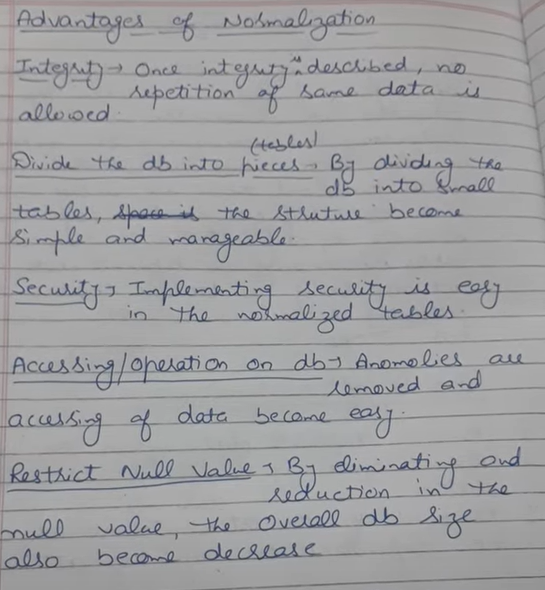 Advantages of Normalization
Integrity → Once integrity is described, no
repetition of same data is
allowed.
(tables)
Divide the db into pieces → By dividing the
db into small
tables, space is the struture become
simple and manageable.
Security → Implementing security is easy
in the normalized tables.
Accessing/Operation on db → Anomolies are
removed and
accessing of data become easy.
Restrict Null Value → By eliminating and
reduction in the
null value, the overall db size
also become decrease